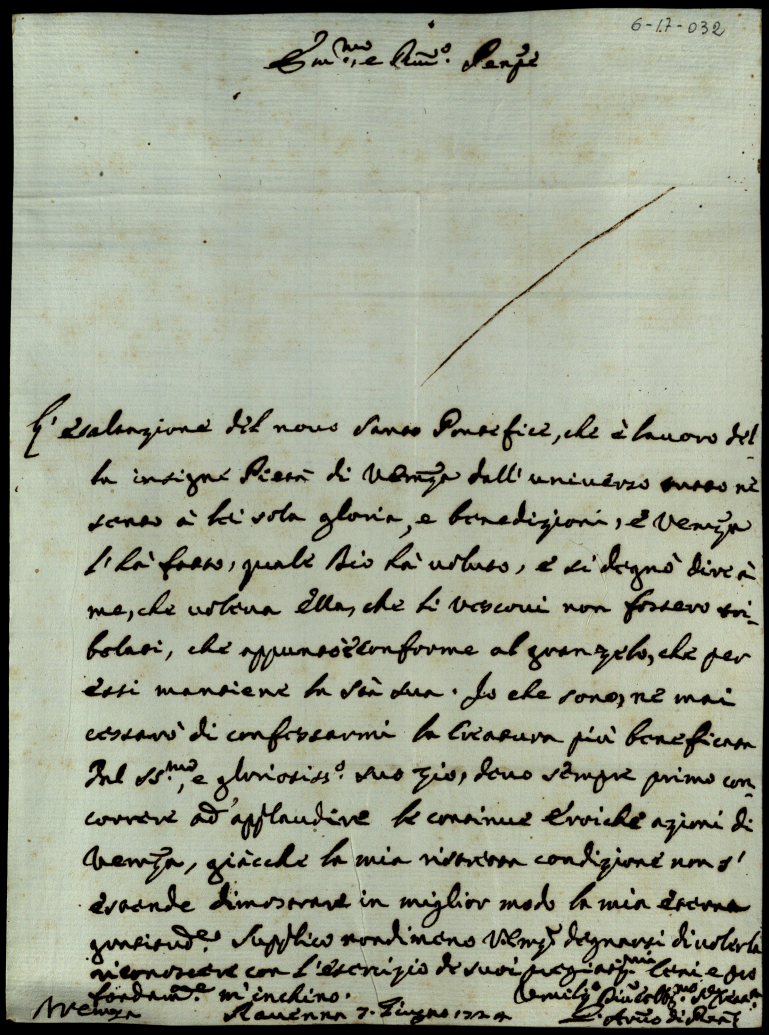 6-17-032
Em.mo, e Rmo. Prñpe
L'esaltazione del novo Santo Pontefice, che è lavoro del-
la insigne Pietà di Vemza dall'universo tutto ne
sento à lei sola gloria, e benedizioni, e Vemza
l'hà fatto, quale Dio hà voluto, e si degnò dire à
me, che voleva Ella, che li Vescovi non fossero tri-
bolati, che appunto è conforme al gran zelo, che per
essi mantiene la Stà Sua. Io che sono, ne mai
cessarò di confessarmi la Creatura più beneficata
Dal SS.mo, e gloriosiss.o suo zio, devo sempre primo con-
correre ad applaudire le continue Eroiche azioni di
Vemza, giàcche la mia ristretta condizione non s'
estende dimostrare in miglior modo la mia eterna
gratitud.e Supplico nondimeno Vemza degnarsi di volerla
riconoscere con l'esercizio de suoi pregiatiss.mi Ceni e pro
fondam.e m'inchino.
Vemza Ravenna 7. Giugno 1724 L'Arciv.o di